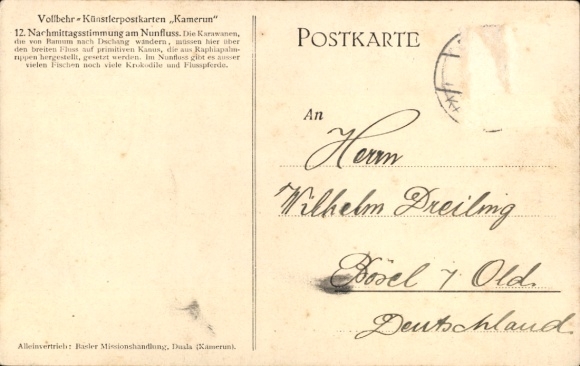 Vollbehr-Künstlerpostkarten „Kamerun"
12. Nachmittagsstimmung am Nunfluss. Die Karawanen,
die von Bamum nach Dschang wandern, müssen hier über
den breiten Fluss auf primitiven Kanus, die aus Raphiapalm-
rippen hergestellt, gesetzt werden. Im Nunfluss gibt es ausser
vielen Fischen noch viele Krokodile und Flusspferde.
Alleinvertrieb: Basler Missionshandlung, Duala (Kamerun).
POSTKARTE
An
Herrn
Wilhelm Dreiling
Bösel i/ Old.
Deutschland